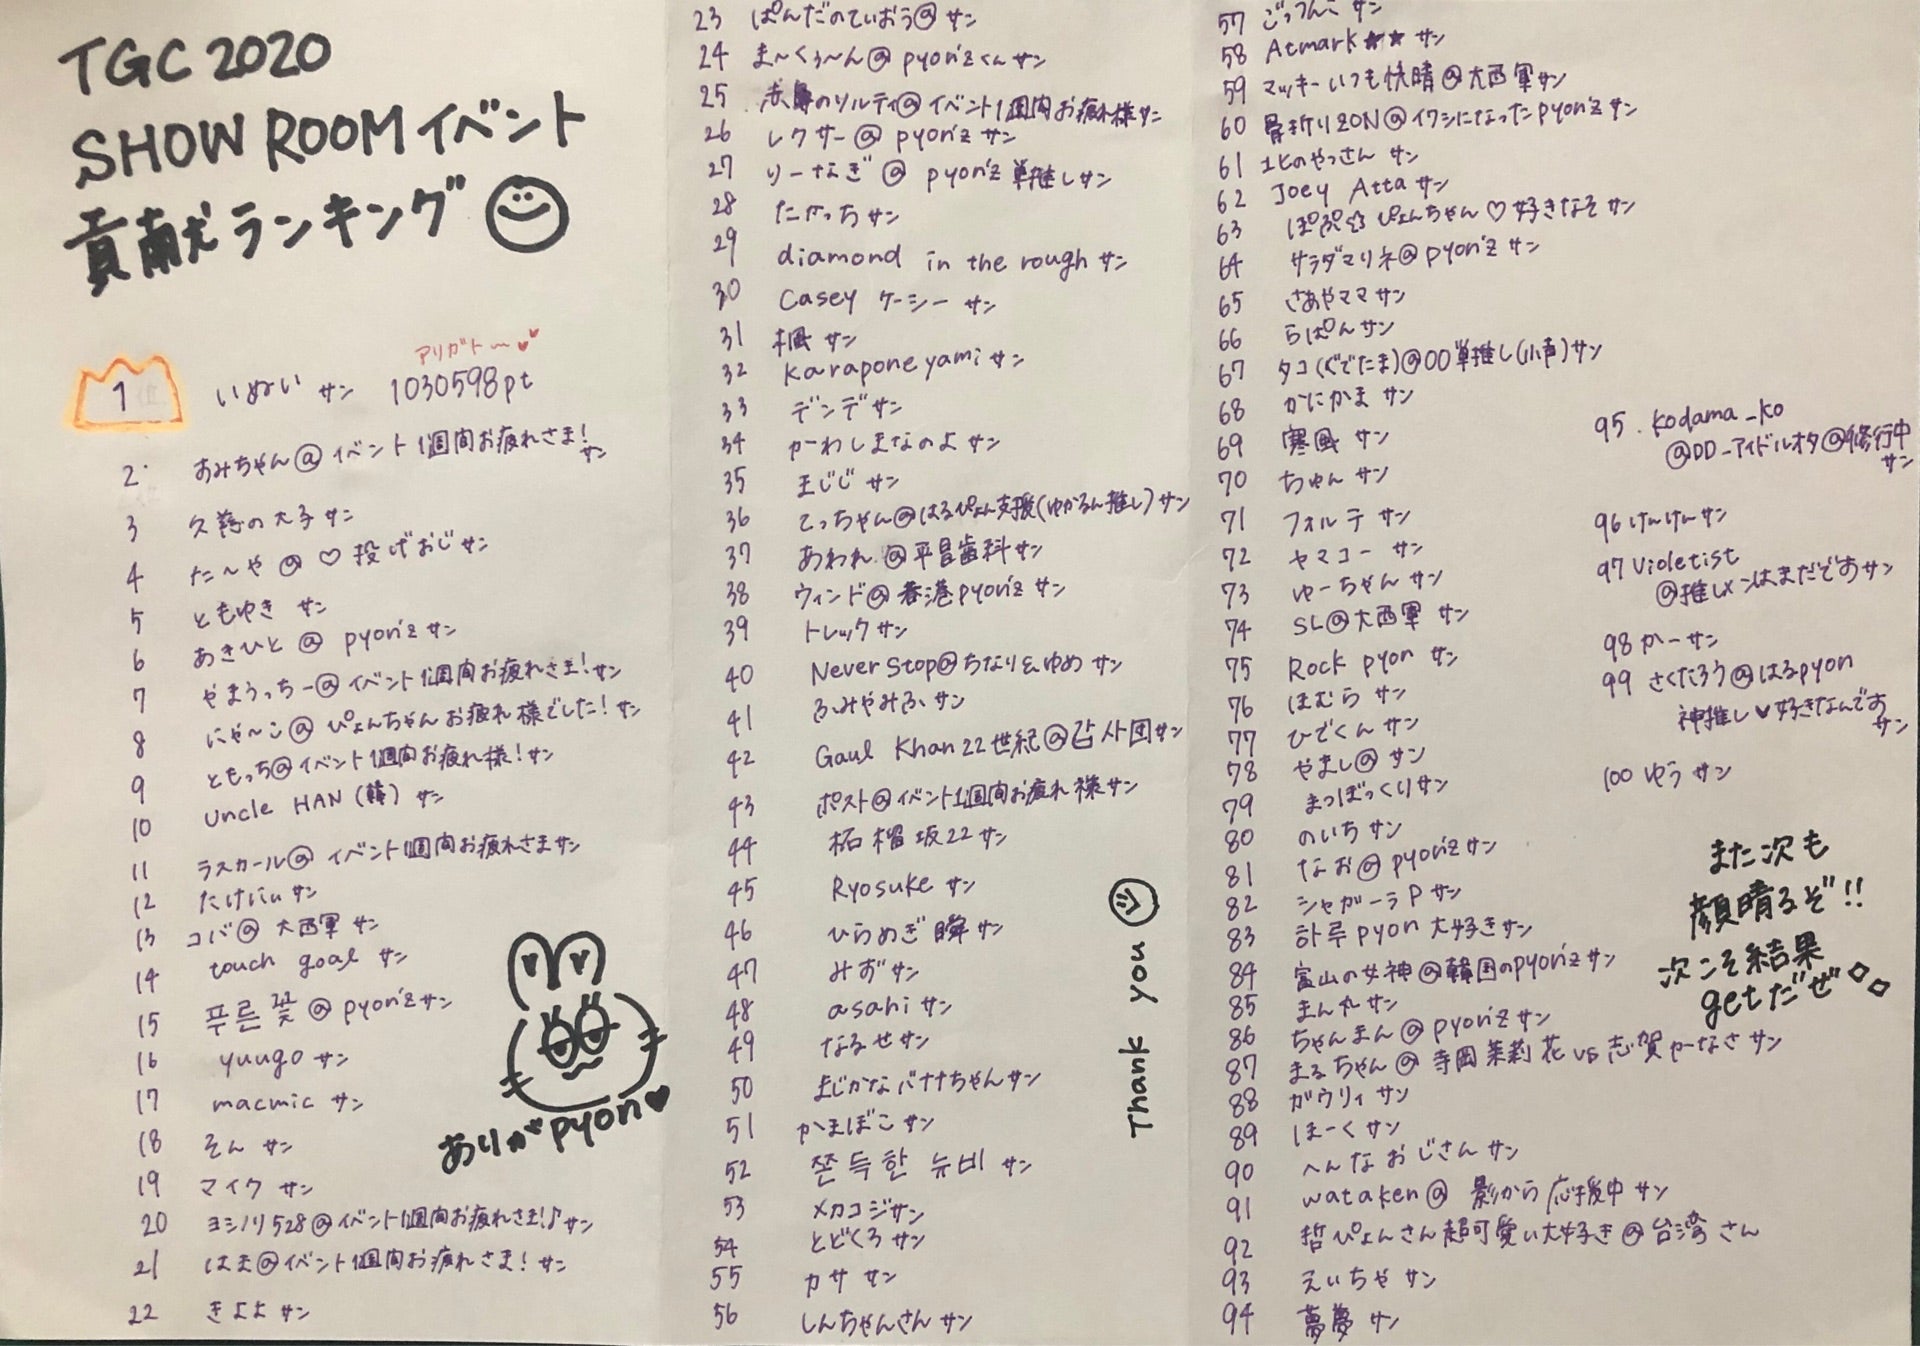 TGC 2020
SHOW ROOM イベント
貢献ランキング
アリガトー
1 いぬい サン 1030598pt
2 あみちゃん@イベント1週間お疲れさま!
サン
3 久遠の太子 サン
4 た〜や@♡投げおじサン
5 ともゆき サン
6 あきひと@pyon'zサン
7 やまうっちー@イベント1週間お疲れさま!サン
8 にゃ〜こ@ぴょんちゃんお疲れ様でした!サン
9 ともっち@イベント1週間お疲れ様!サン
10 Uncle HAN (韓) サン
11 ラスカール@イベント1週間お疲れさまサン
12 たけにぃサン
13 コバ@大西軍 サン
14 touch goal サン
15 푸른 꽃@pyon'zサン
16 yuugo サン
17 macmic サン
18 そん サン
19 マイク サン
20 ヨシノリ528@イベント1週間お疲れさま!♪サン
21 はま@イベント1週間お疲れさま! サン
22 きよよ サン
ありがpyon♥
23 ぱんだのていおう@ サン
24 ま〜くぅ〜ん@pyon'zくんサン
25 のソルティ@イベント1週間お疲れ様サン
26 レクサー@pyon'z サン
27 りーなぎ@pyon'z 単推しサン
28 たかっち サン
29 diamond in the rough サン
30 Casey ケーシー サン
31 楓 サン
32 karaponeyami サン
33 デンデサン
34 かーわしまなのよ サン
35 王じじ サン
36 てっちゃん@はるぴょん支援(ゆかるん推し)サン
37 あわれ@平昌歯科サン
38 ウィンド@香港pyon'z サン
39 トレックサン
40 Never Stop@ちなり&ゆめ サン
41 ふみやみふ サン
42 Gaul Khan22世紀@감사団サン
43 ポスト@イベント1週間お疲れ様サン
44 柘榴坂22サン
45 Ryosuke サン
46 ひらめぎ瞬サン
47 みず サン
48 asahi サン
49 なるせ サン
50 よじかなバナナちゃんサン
51 かまぼこ サン
52 쫀득한 뉴비 サン
53 メカコジサン
54 とどくろ サン
55 カサ サン
56 しんちゃんさん サン
Thank you
57 ごっつんこ サン
58 Atmark★★ サン
59 マッキーいつも快晴@大西軍サン
60 骨折りZON@イワシになったpyon'z サン
61 ユヒのやっさん サン
62 Joey Atta サン
63 ぽぷ☆ぴょんちゃん♡好きなそ サン
64 サラダマリネ@pyon'z サン
65 さあやママ サン
66 らぱん サン
67 タコ(ぐでたま)@00単推し(小声)サン
68 かにかま サン
69 寒風 サン
70 ちゅん サン
71 フォルテ サン
72 ヤマコー サン
73 ゆーちゃん サン
74 SL@大西軍 サン
75 Rock pyon サン
76 ほむら サン
77 ひでくん サン
78 やまし@ サン
79 まつぼっくり サン
80 のいち サン
81 なお@pyon'zサン
82 シャガーラP サン
83 하루pyon大好きサン
84 富山の女神@韓国のpyon'zサン
85 まん丸 サン
86 ちゃんまん@pyon'zサン
87 まるちゃん@寺岡茉莉花vs志賀かーなさ サン
88 ガウリィ サン
89 ほーく サン
90 へんなおじさん サン
91 wataken@影から応援中 サン
92 哲ぴょんさん超可愛い大好き@台湾 さん
93 えいちゃ サン
94 夢夢 サン
95. kodama_ko
@DD_アイドルオタ@修行中
サン
96 けんけんサン
97 Violetist
@推しメンはまだですサン
98 かーサン
99 さくたろう@はるpyon
神推し♥好きなんです
サン
100 ゆう サン
また次も
顔晴るぞ!!
次こそ結果
getだぜ